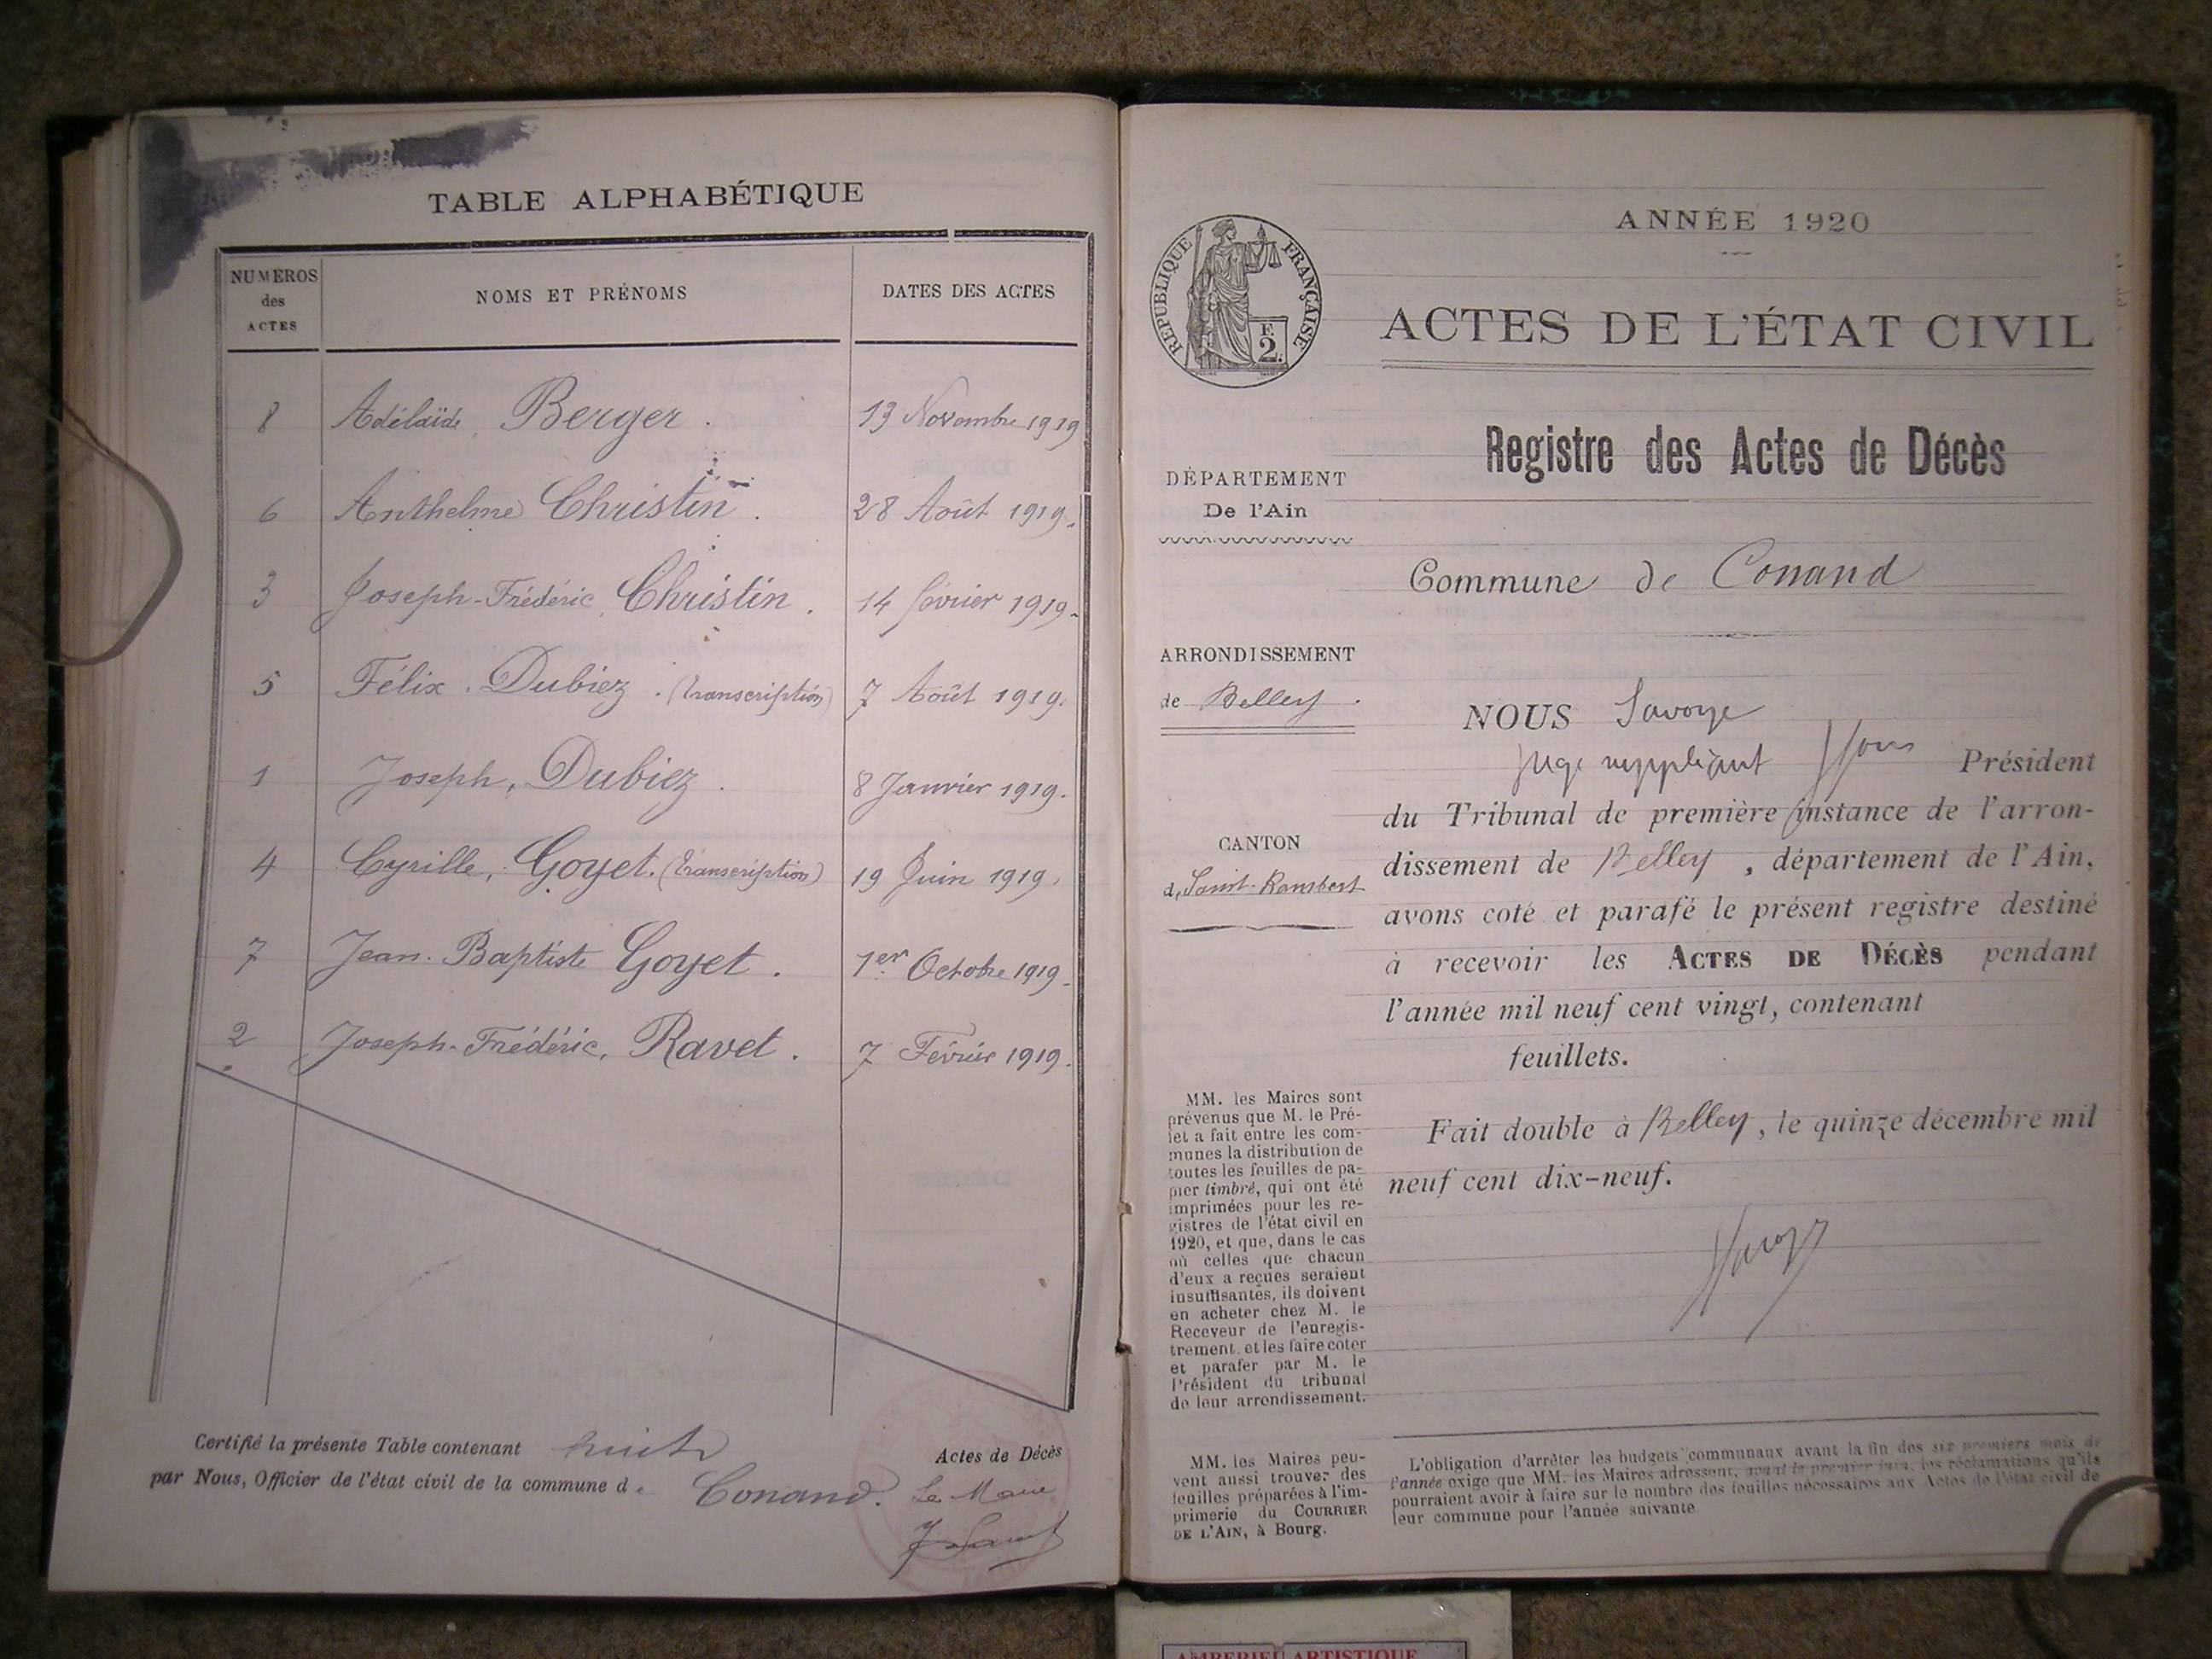 TABLE ALPHABÉTIQUE
NUMÉROS des ACTES
NOMS ET PRÉNOMS
DATES DES ACTES
8 Adélaïde, Berger. 13 Novembre 1919
6 Anthelme Christin. 28 Août 1919.
3 Joseph-Frédéric, Christin. 14 février 1919.
5 Félix. Dubiez. (transcription) 7 Août 1919.
1 Joseph, Dubiez. 8 Janvier 1919.
4 Cyrille, Goyet. (transcription) 19 Juin 1919.
7 Jean-Baptiste Goyet. 1er Octobre 1919.
2 Joseph-Frédéric, Ravet. 7 Février 1919.
Certifié la présente Table contenant huit Actes de Décès
par Nous, Officier de l'état civil de la commune de Conand. Le Maire
RÉPUBLIQUE FRANÇAISE
F.
2.
ANNÉE 1920
ACTES DE L'ÉTAT CIVIL
Registre des Actes de Décès
DÉPARTEMENT
De l'Ain
Commune de Conand
ARRONDISSEMENT
de Belley.
CANTON
de Saint-Rambert
NOUS Savoye
juge suppléant Président
du Tribunal de première instance de l'arron-
dissement de Belley, département de l'Ain,
avons coté et parafé le présent registre destiné
à recevoir les ACTES DE DÉCÈS pendant
l'année mil neuf cent vingt, contenant
feuillets.
Fait double à Belley, le quinze décembre mil
neuf cent dix-neuf.
MM. les Maires sont
prévenus que M. le Pré-
fet a fait entre les com-
munes la distribution de
toutes les feuilles de pa-
pier timbré, qui ont été
imprimées pour les re-
gistres de l'état civil en
1920, et que, dans le cas
où celles que chacun
d'eux a reçues seraient
insuffisantes, ils doivent
en acheter chez M. le
Receveur de l'enregis-
trement, et les faire coter
et parafer par M. le
Président du tribunal
de leur arrondissement.
MM. les Maires peu-
vent aussi trouver des
feuilles préparées à l'im-
primerie du COURRIER
DE L'AIN, à Bourg.
L'obligation d'arrêter les budgets communaux avant la fin des six premiers mois de
l'année exige que MM. les Maires adressent, avant le premier juin, les réclamations qu'ils
pourraient avoir à faire sur le nombre des feuilles nécessaires aux Actes de l'état civil de
leur commune pour l'année suivante.
AMBERIEU ARTISTIQUE